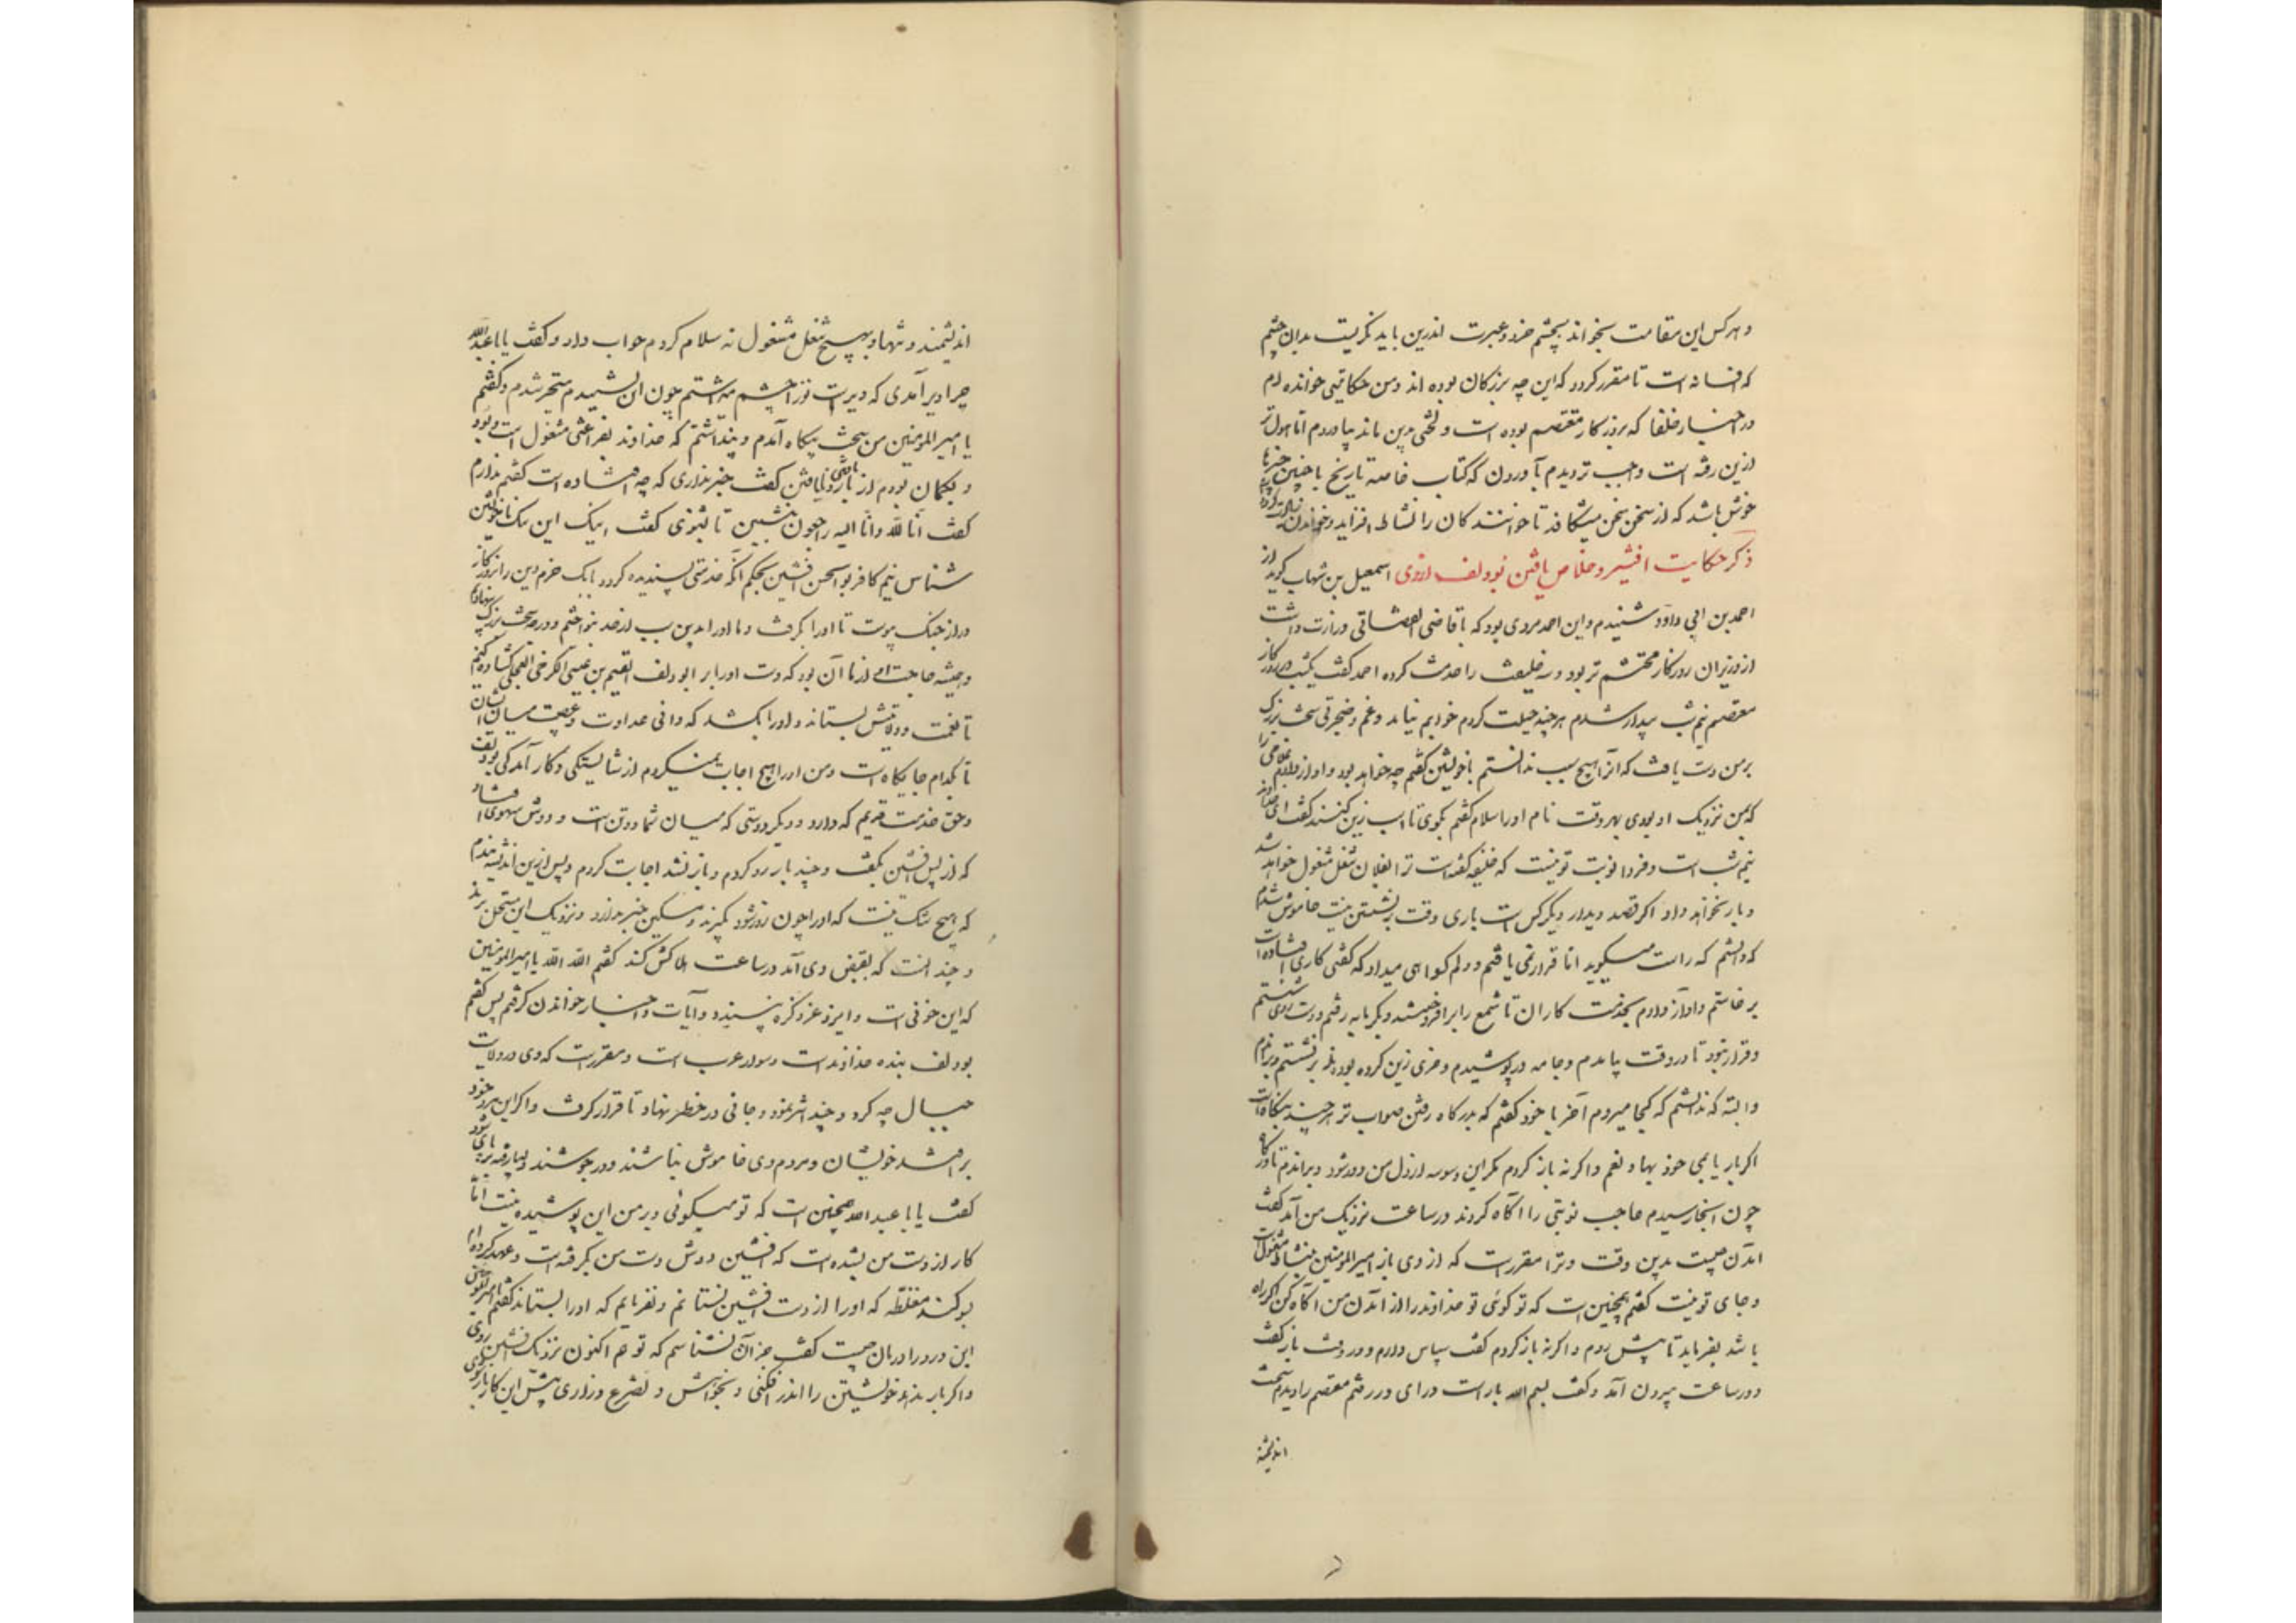 و هر کس این مقامت بخواند بچشم خرد و عبرت اندرین باید نگریست بدان چشم
که افسانه است تا مقرر گردد که این چه بزرگان بوده اند و من حکایتی خوانده ام
در اخبار خلفا که بروزگار معتصم بوده است و لختی بدین ماند بیاوردم اما هول تر
ازین رفته است واجب تر دیدم آوردن که کتاب خاصه تاریخ با چنین چیزها
خوش باشد که از سخن سخن میشکافد تا خوانندکان را نشاط افزاید و خواندن
ذکر حکایت افشین و خلاص یافتن بودلف از وی اسمعیل بن شهاب گوید از
احمد بن ابی داود شنیدم و این احمد مردی بود که با قاضی القضاتی وزارت داشت
از وزیران روزگار محتشم تر بود و سه خلیفت را خدمت کرده احمد گفت یکشب در روزگار
معتصم نیم شب بیدار شدم هر چند حیلت کردم خوابم نیامد و غم و ضجرتی سخت بزرگ
بر من دست یافت که آنرا هیچ سبب ندانستم با خویشتن گفتم چه خواهد بود و آواز دادم غلامی را
که بمن نزدیک او بودی بهر وقت نام او سلام گفتم بگوی تا اسب زین کنند گفت ای خداوند
نیم شب است و فردا نوبت تو نیست که خلیفه گفته است ترا بفلان شغل مشغول خواهد شد
و بار نخواهد داد اگر قصد دیدار دیگر کس است باری وقت برنشستن نیست خاموش شدم
که دانستم که راست میگوید اما قرار نمی یافتم و دلم گواهی میداد که گفتی کاری افتاده است
برخاستم و آواز دادم بخدمت کاران تا شمع را برافروختند و بگرمابه رفتم و دست و روی شستم
و قرار نبود تا در وقت بیامدم و جامه در پوشیدم و خری زین کرده بودند برنشستم و براندم
و البته که ندانستم که کجا میروم آخر با خود گفتم که بدرگاه رفتن صواب تر هر چند بیگاه است
اگر بار یابمی خود بها و نعم و اگر نه باز گردم مگر این وسوسه از دل من دور شود و براندم تا درگاه
چون آنجا رسیدم حاجب نوبتی را آگاه کردند در ساعت نزدیک من آمد گفت
آمدن چیست بدین وقت و ترا مقررست که از دی باز امیر المؤمنین بنشاط مشغولست
و جای تو نیست گفتم همچنین است که تو گوئی تو خداوند را از آمدن من آگاه کن اگر راه
باشد بفرماید تا پیش روم و اگر نه باز گردم گفت سپاس دارم و در رفت باز گفت
و در ساعت بیرون آمد و گفت بسم الله بار است در آی در رفتم معتصم را دیدم سخت
اندیشمند
اندیشمند و تنها و بهیچ شغل مشغول نه سلام کردم جواب داد و گفت یا با عبد الله
چرا دیر آمدی که دیرست تو را چشم میداشتم چون این بشنیدم متحیر شدم و گفتم
یا امیر المؤمنین من سخت بیگاه آمدم و پنداشتم که خداوند بفراغتی مشغول است
و بگمان بودم از بار یافتن و نایافتن گفت خبر نداری که چه افتاده است گفتم ندارم
گفت انا لله و انا الیه راجعون بنشین تا بشنوی گفت اینک این سگ ناخویشتن
شناس نیم کافر بوالحسن افشین بحکم آنکه خدمتی پسندیده کرد و بابک خرم دین را بروزگار
دراز جنگ پیوست تا او را گرفت و ما او را بدین سبب از حد بنواختم و درجه سخت بزرگ بنهادیم
و همیشه حاجت وی از ما آن بود که دست او را بر ابو دلف القسم بن عیسی الکرخی العجلی گشاده کنیم
تا نعمت و ولایتش بستاند و او را بکشد که دانی عداوت و عصبیت میان ایشان
تا کدام جایگاه است و من او را هیچ اجابت نمیکردم از شایستگی و کار آمدگی بودلف
و حق خدمت قدیم که دارد و دیگر دوستی که میان شما دو تن است و دوش سهوی افتاد
که از بس افشین بگفت و چند بار رد کردم و باز نشد اجابت کردم و پس ازین اندیشمندم
که هیچ شک نیست که او را چون روز شود بگیرند و مسکین خبر ندارد و نزدیک این مستحل برند
و چندانست که بقبض وی آمد در ساعت هلاکش کند گفتم الله الله یا امیر المؤمنین
که این خونی است که ایزد عز ذکره نپسندد و آیات و اخبار خواندن گرفتم پس گفتم
بودلف بنده خداوندست و سوار عرب است و مقررست که وی در ولایت
جبال چه کرد و چند اثر نمود و جانی در خطر نهاد تا قرار گرفت و اگر این مرد خود
بر افتد خویشان و مردم وی خاموش نباشند و در جوشند و بسیار فتنه بر پای شود
گفت یا با عبد الله همچنین است که تو میگوئی و بر من این پوشیده نیست اما
کار از دست من بشده است که افشین دوش دست من بگرفته است و عهد کرده ام
بسوگند مغلظه که او را از دست افشین نستانم و نفرمایم که او را بستانند گفتم یا امیر المؤمنین
این درد را درمان چیست گفت جز آن نشناسم که تو هم اکنون نزدیک افشین روی
و اگر بار ندهد خویشتن را اندر افگنی و بخواهش و تضرع و زاری پیش این کار باز شوی